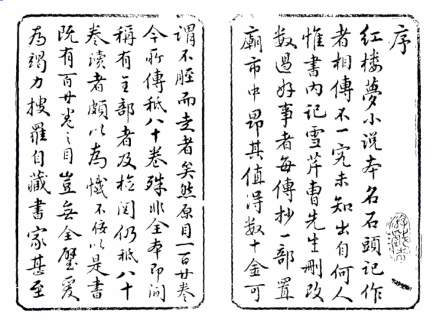 序
紅樓夢小說本名石頭記作
者相傳不一究未知出自何人
惟書內記雪芹曹先生刪改
数過好事者每傳抄一部置
廟市中昂其值得数十金可
謂不脛而走者矣然原目一百廿卷
今所傳秪八十卷殊非全本即間
稱有全部者及檢閱仍秪八十
卷讀者頗以為憾不佞以是書
既有百廿卷之目豈無全璧爰
為竭力搜羅自藏書家甚至